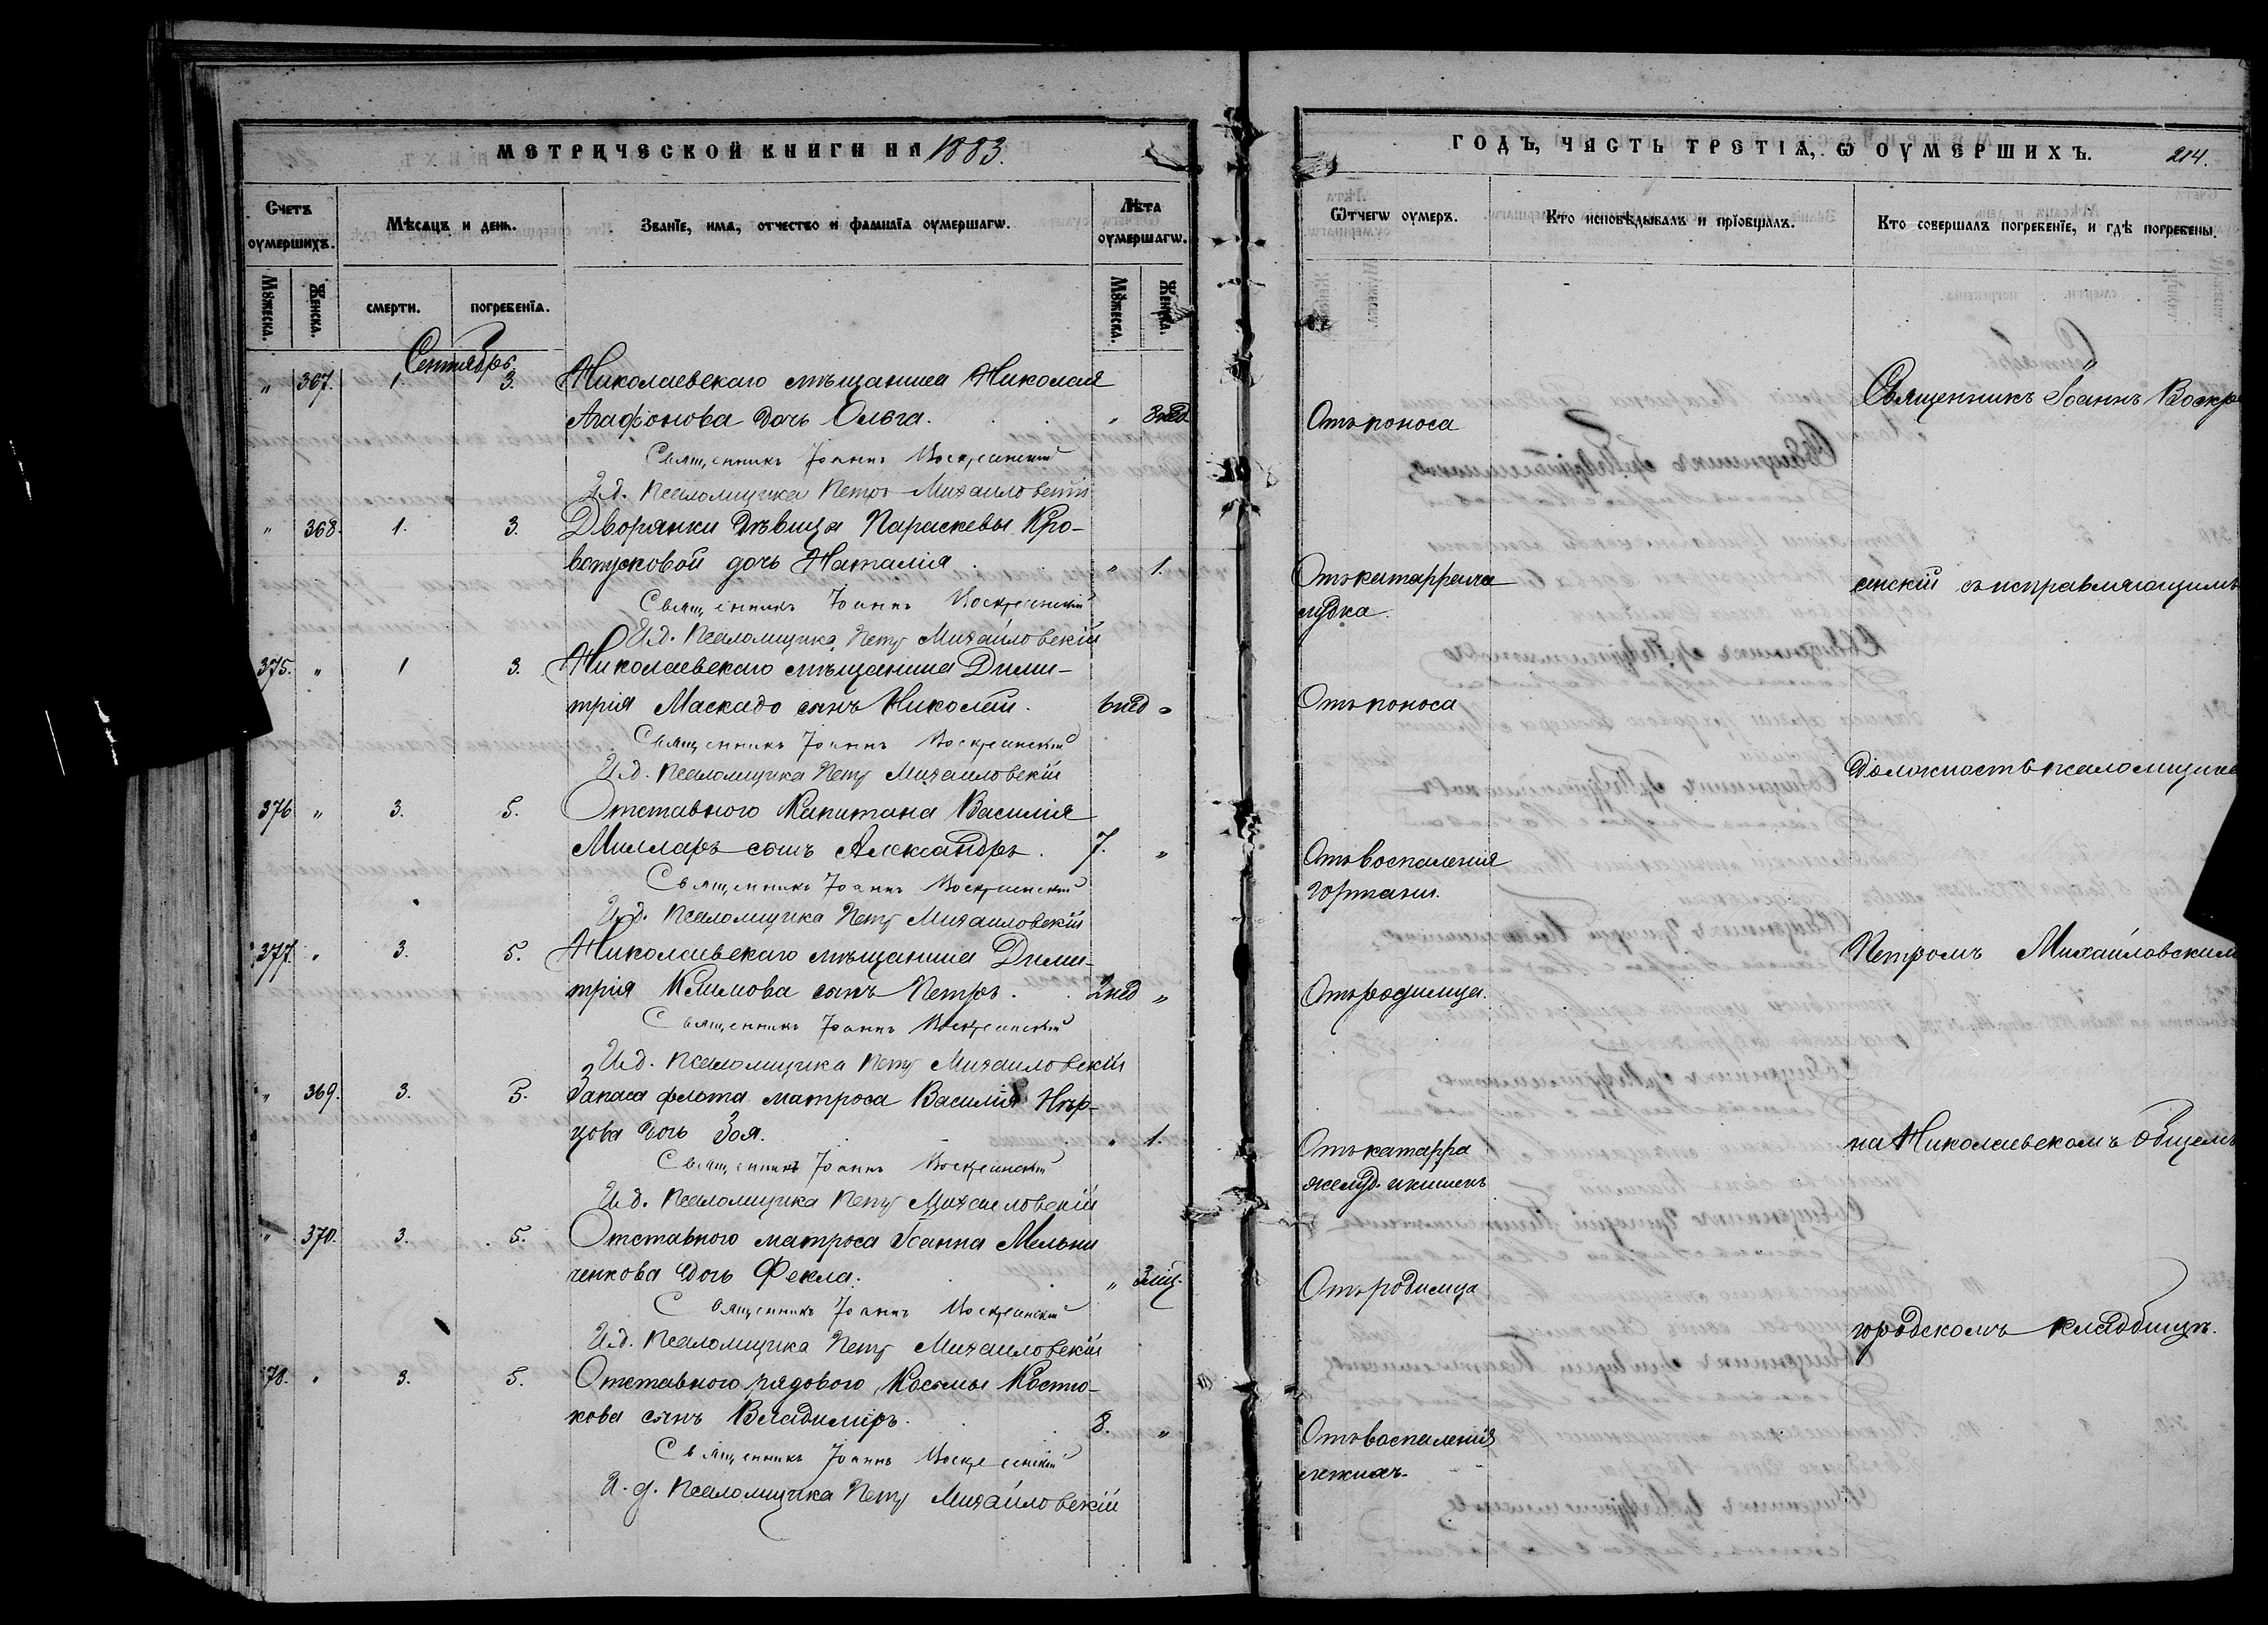 МЕТРИЧЕСКОЙ КНИГИ НА 1883.
Счетъ оумершихъ.
Мѣсяцъ и день.
Званїе, имѧ, отчество и фамилїа оумершагѡ.
Лѣта оумершагѡ.
Мꙋжеска. Женска.
смерти. погребенїѧ.
Мꙋжеска. Женска.
Сентябрь.
" 367. 1. 3. Николаевскаго мѣщанина Николая
Агафонова дочь Ольга. " 3 нед
Священникъ Іоаннъ Воскресенскій
И.д. псаломщика Петръ Михайловскій
" 368. 1. 3. Дворянки дѣвицы Параскевы Кро-
вопусковой дочь Наталія " 1.
Священникъ Іоаннъ Воскресенскій
И.д. псаломщика Петръ Михайловскій
375. " 1 3. Николаевскаго мѣщанина Дими-
трія Маскадо сынъ Николай. 6 нед "
Священникъ Іоаннъ Воскресенскій
И.д. псаломщика Петръ Михайловскій
376 " 3. 5. Отставного Капитана Василія
Милларъ сынъ Александръ. 7. "
Священникъ Іоаннъ Воскресенскій
И.д. псаломщика Петръ Михайловскій
377. " 3. 5. Николаевскаго мѣщанина Дими-
трія Климова сынъ Петръ. 2 нед "
Священникъ Іоаннъ Воскресенскій
И.д. псаломщика Петръ Михайловскій
" 369. 3. 5. Запаса флота матроса Василія
дочь Зоя. " 1.
Священникъ Іоаннъ Воскресенскій
И.д. псаломщика Петръ Михайловскій
" 370. 3. 5. Отставного матроса Іоанна Мельни
ченкова дочь Фекла. " 3 мц.
Священникъ Іоаннъ Воскресенскій
И.д. псаломщика Петръ Михайловскій
378. " 3. 5. Отставного рядового Космы Костю-
кова сынъ Владиміръ. 8. "
Священникъ Іоаннъ Воскресенскій
И.д. псаломщика Петръ Михайловскій
ГОДЪ, ЧАСТЬ ТРЕТІѦ, Ѡ ОУМЕРШИХЪ. 214.
Ѿтчегѡ оумеръ.
Кто исповѣдывалъ и прїобщалъ.
Кто совершалъ погребенїе, и гдѣ погребены.
Священникъ Іоаннъ Воскре
Отъ поноса
Отъ катарра
енскій съ исправляющимъ
Отъ поноса
должность псаломщика
Отъ воспаленія
гортани.
Петромъ Михайловским
Отъ родимца.
на Николаевскомъ общемъ
Отъ катарра
желуд. и кишекъ
Отъ родимца
городскомъ кладбищѣ.
Отъ воспаленія
легкихъ.